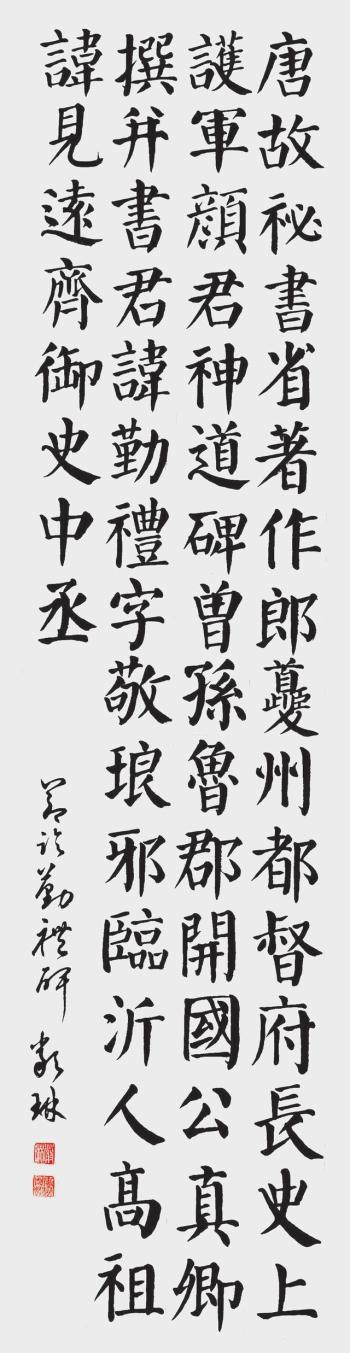 唐故祕書省著作郎夔州都督府長史上
護軍顏君神道碑曽孫魯郡開國公真卿
撰并書君諱勤禮字敬琅邪臨沂人高祖
諱見遠齊御史中丞
節臨勤禮碑